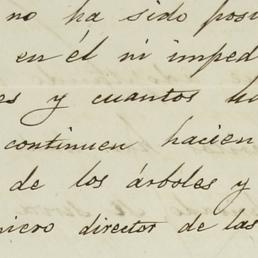 no ha sido posi
en él ni imped
es y cuantos ha
continuen hacien
de los árboles y
niero director de las